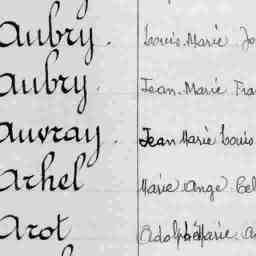 Aubry. Louis Marie Jo
Aubry. Jean Marie Fra
Auvray. Jean Marie Louis
Arhel Marie Ange Cel
Arot Adolphe Marie. A